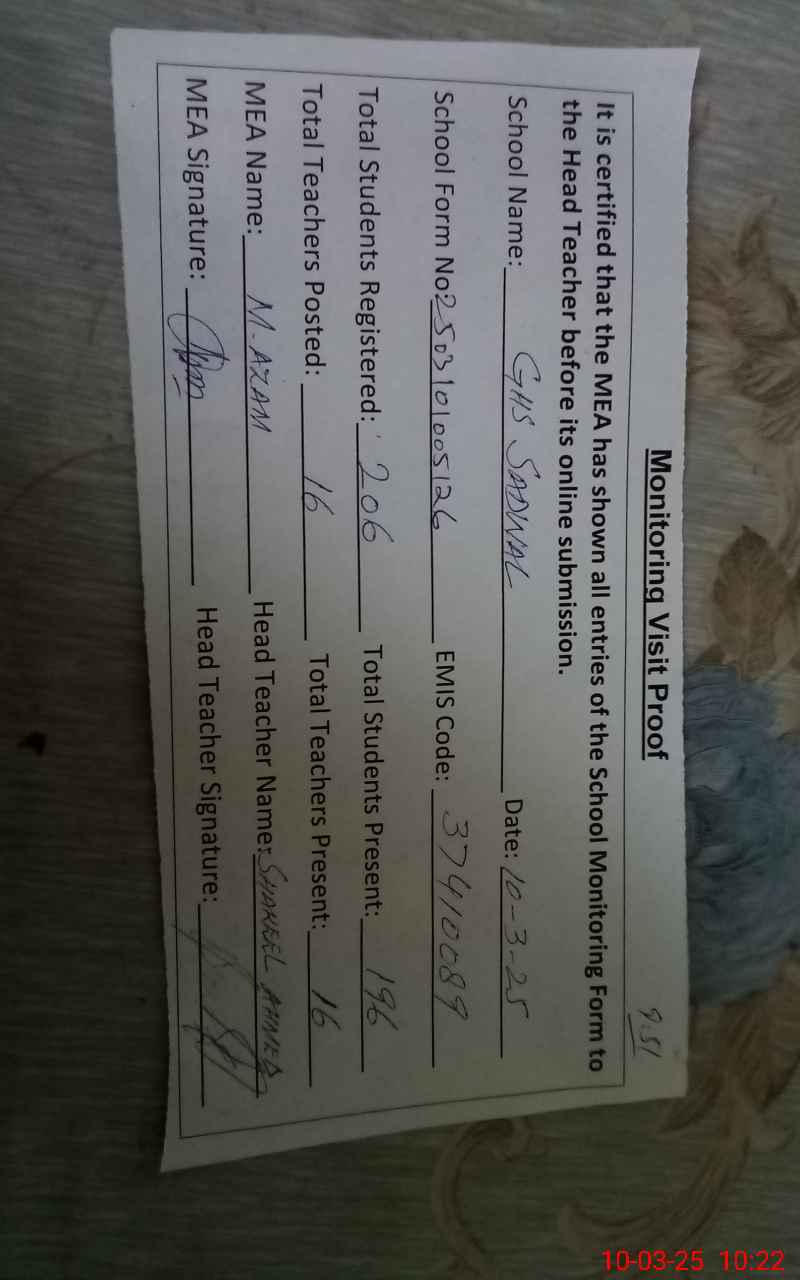 Monitoring Visit Proof
9.51
It is certified that the MEA has shown all entries of the School Monitoring Form to
the Head Teacher before its online submission.
School Name: GHS SADWAL Date: 10-3-25
School Form No: 2503101005126 EMIS Code: 37410089
Total Students Registered: 206 Total Students Present: 196
Total Teachers Posted: 16 Total Teachers Present: 16
MEA Name: M. AZAM Head Teacher Name: SHAKEEL AHMED
MEA Signature: Head Teacher Signature:
10-03-25 10:22